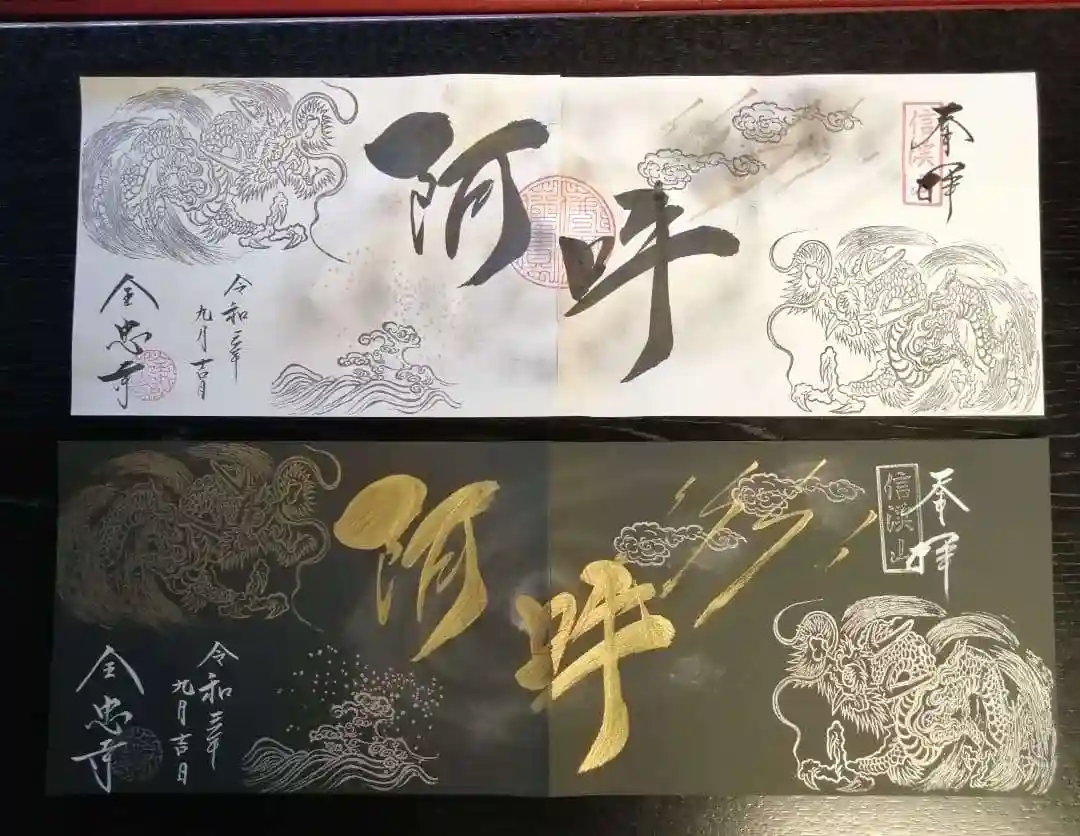 奉拝
信渓山
阿吽
令和三年
九月吉日
全忠寺
奉拝
信渓山
阿吽
令和三年
九月吉日
全忠寺